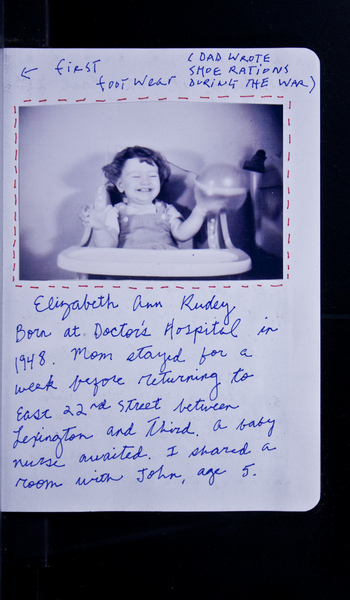 ← first
foot wear
(DAD WROTE
SHOE RATIONS
DURING THE WAR)
Elizabeth Ann Rudey
Born at Doctor's Hospital in
1948. Mom stayed for a
week before returning to
East 22nd Street between
Lexington and Third. A baby
nurse awaited. I shared a
room with John, age 5.